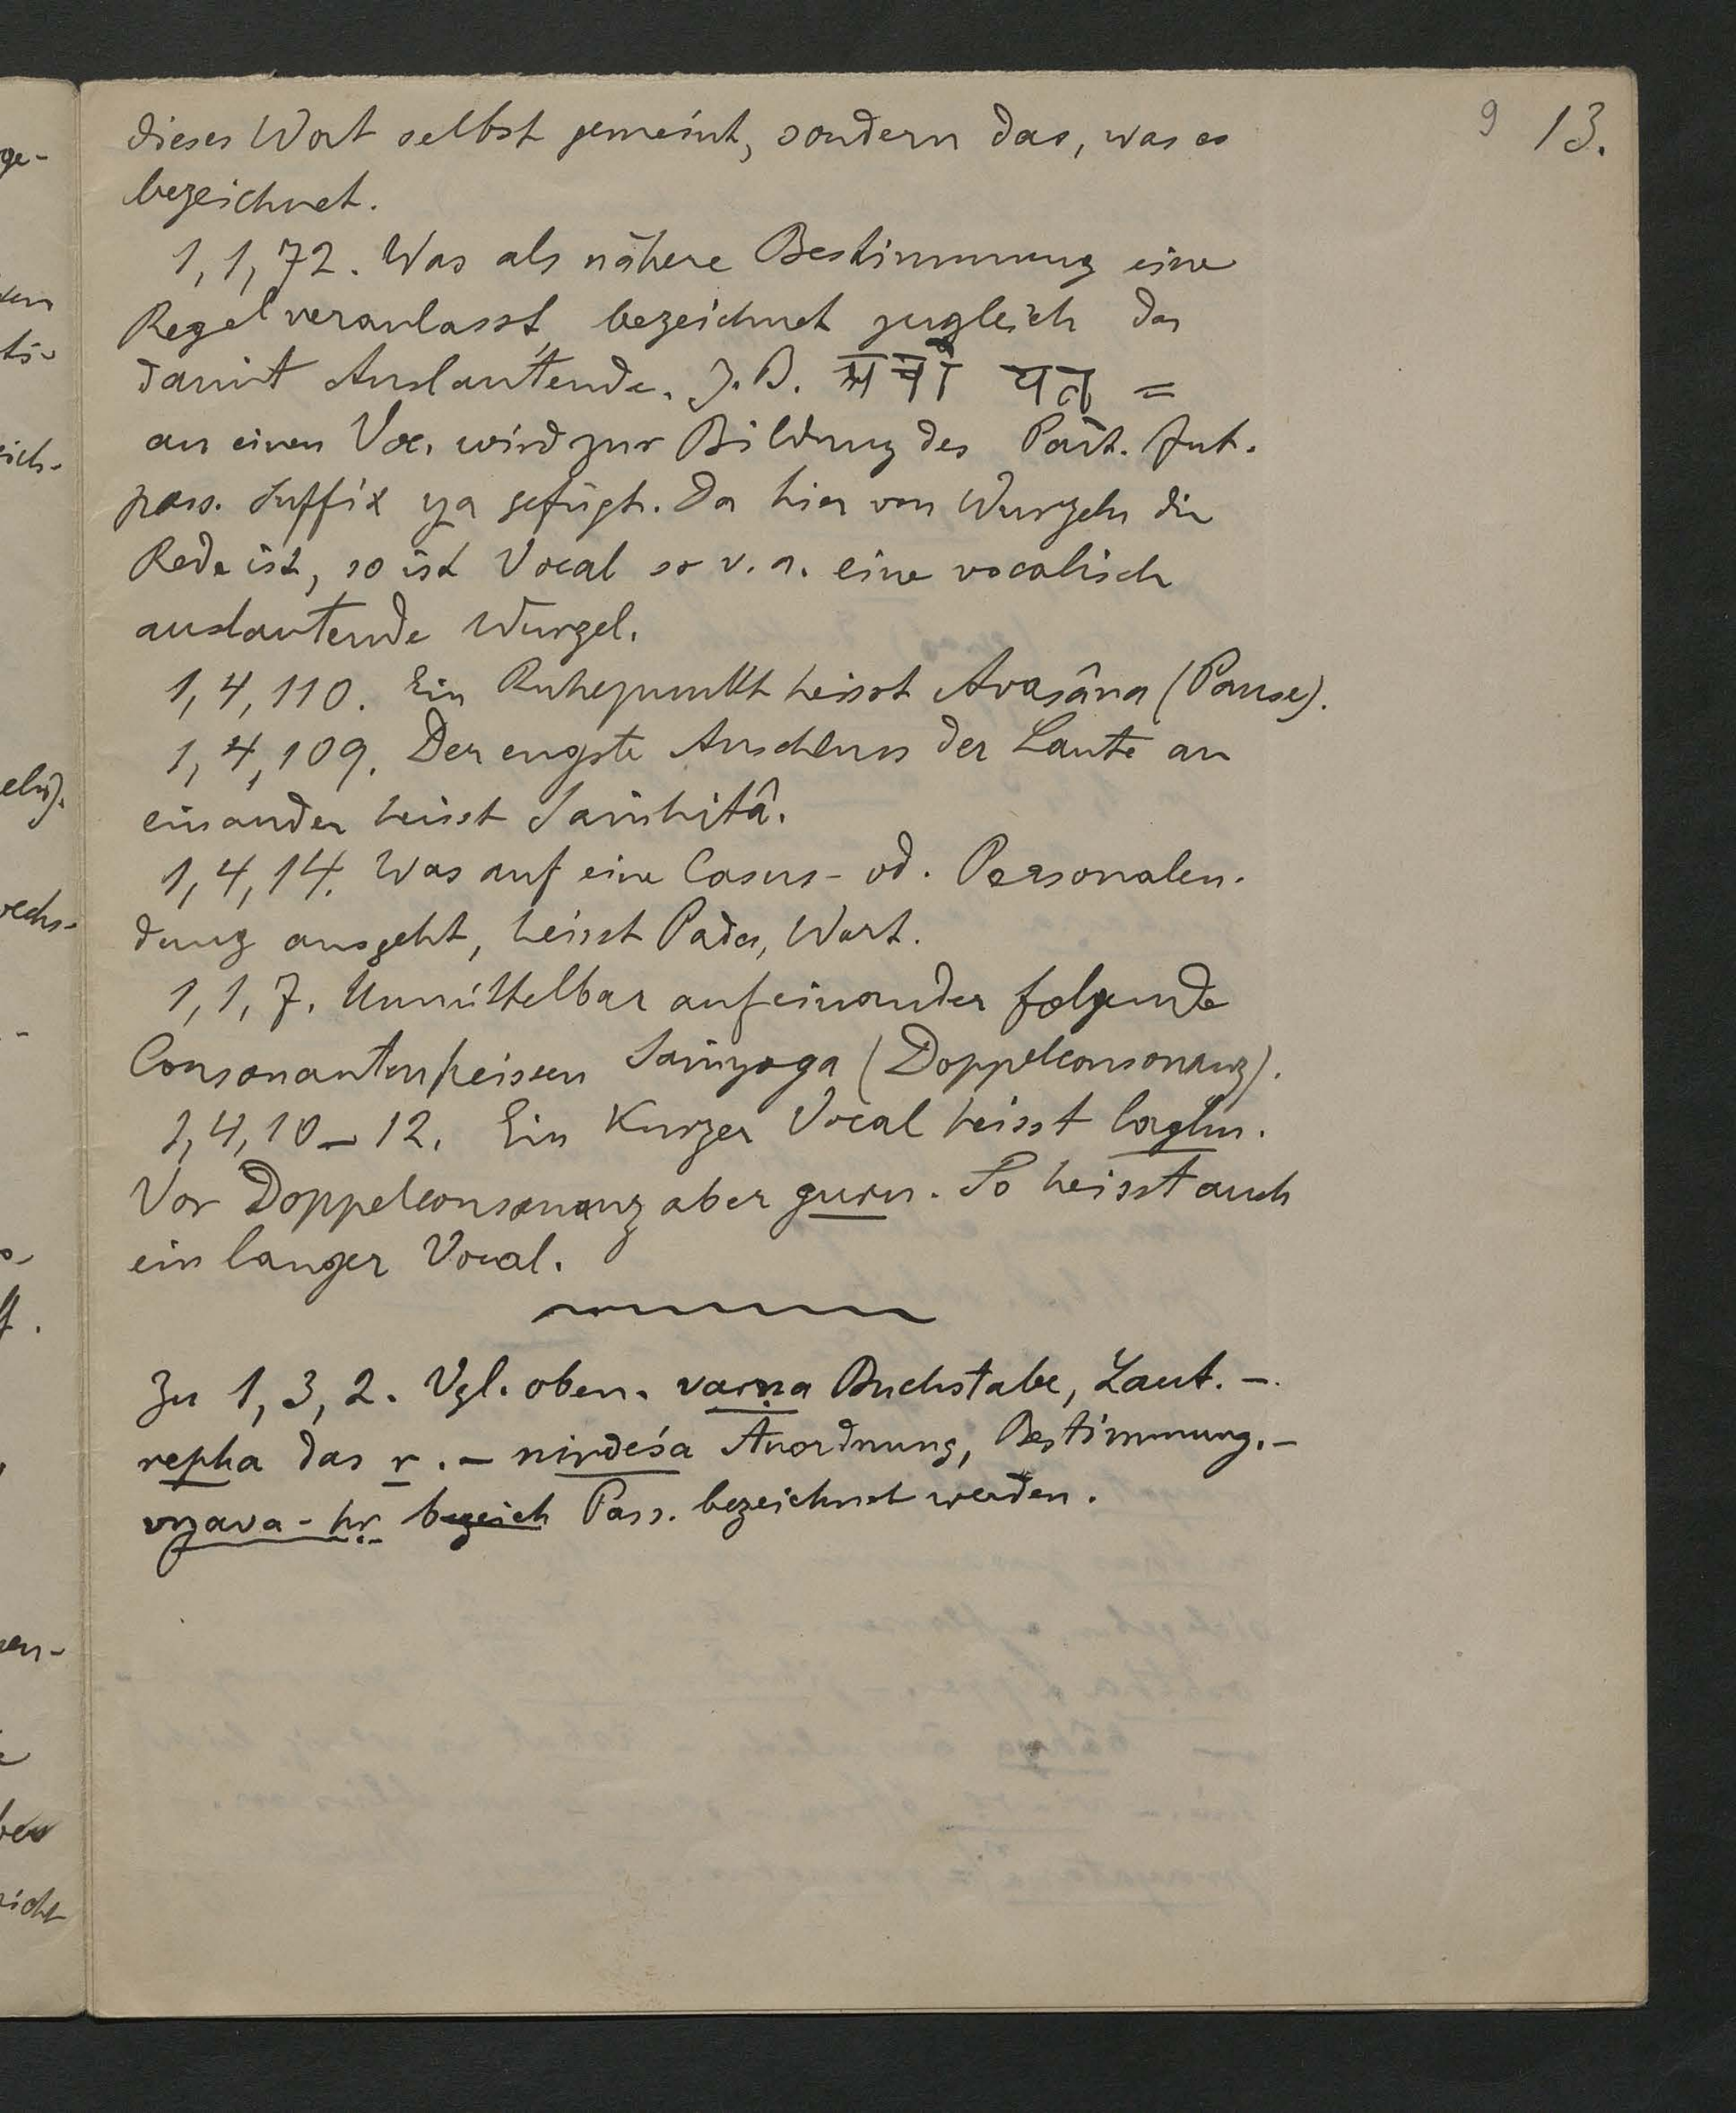 9 13.
dieses Wort selbst gemeint, sondern das, was es
bezeichnet.
1, 1, 72. Was als nähere Bestimmung eine
Regel veranlasst, bezeichnet zugleich das
damit Auslautende. Z. B. यत् =
an einen Voc. wird zur Bildung des Part. fut.
pass. Suffix ya gefügt. Da hier von Wurzeln die
Rede ist, so ist Vocal so v. a. eine vocalisch
auslautende Wurzel.
1, 4, 110. Ein Ruhepunkt heisst Avasâna (Pause).
1, 4, 109. Der engste Anschluss der Laute an
einander heisst Saṁhitâ.
1, 4, 14. Was auf eine Casus- od. Personalen-
dung ausgeht, heisst Pada, Wort.
1, 1, 7. Unmittelbar auf einander folgende
Consonanten heissen Saṁyoga (Doppelconsonanz).
1, 4, 10 – 12. Ein Kurzer Vocal heisst laghu.
Vor Doppelconsonanz aber guru. So heisst auch
ein langer Vocal.
Zu 1, 3, 2. Vgl. oben. varṇa Buchstabe, Laut. –
repha das r. – nirdeśa Anordnung, Bestimmung. –
vyava-hṛ bezeich Pass. bezeichnet werden.